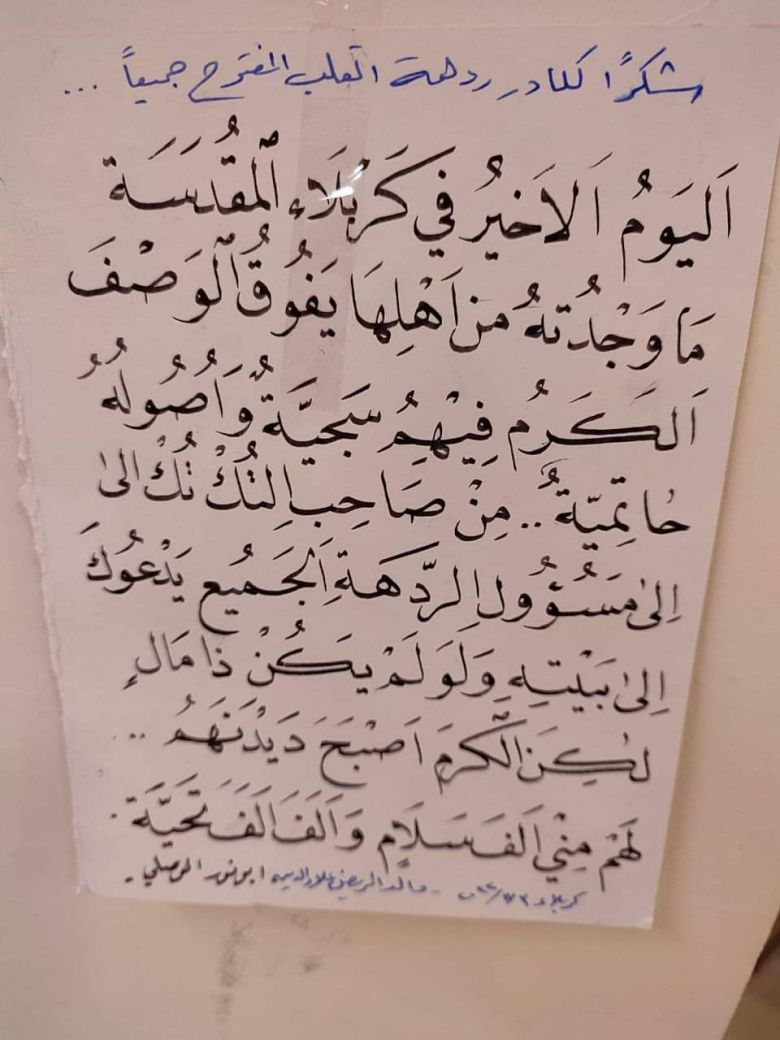 شكرًا لكادر ردهة القلب المفتوح جميعاً ...
اَليَومُ اَلاَخيرُ في كَرْبَلَاءِ ٱلمُقُدَسَة
مَا وَجْدُتهُ من اَهْلِهَا يَفُوقُ ٱلوَصْفَ
اَلكَرُم فِيْهِمُ سَجيَّةٌ وَاُصُولهُ
حاتِميّةٌ .. مِنْ صَاحِب اِلتُكْ تُكْ الىٰ
اِلىٰ مَسُؤُول اِلردّهَةِ اَلجَميُع يَدْعُوكَ
اِلىٰ بَيْتِهِ وَلَو لَمْ يَكُنْ ذا مَالٍ
لٰكِنَ ٱلكَرمَ اَصْبَحَ دَيْدَنَهَمُ ..
لَهَمْ مِنْي اَلفَ سَلَامٍ وَاَلفَ اَلفَ تَحيَّة .
كربلاء والد المريض علاء الدين ابو نور الموصلي -